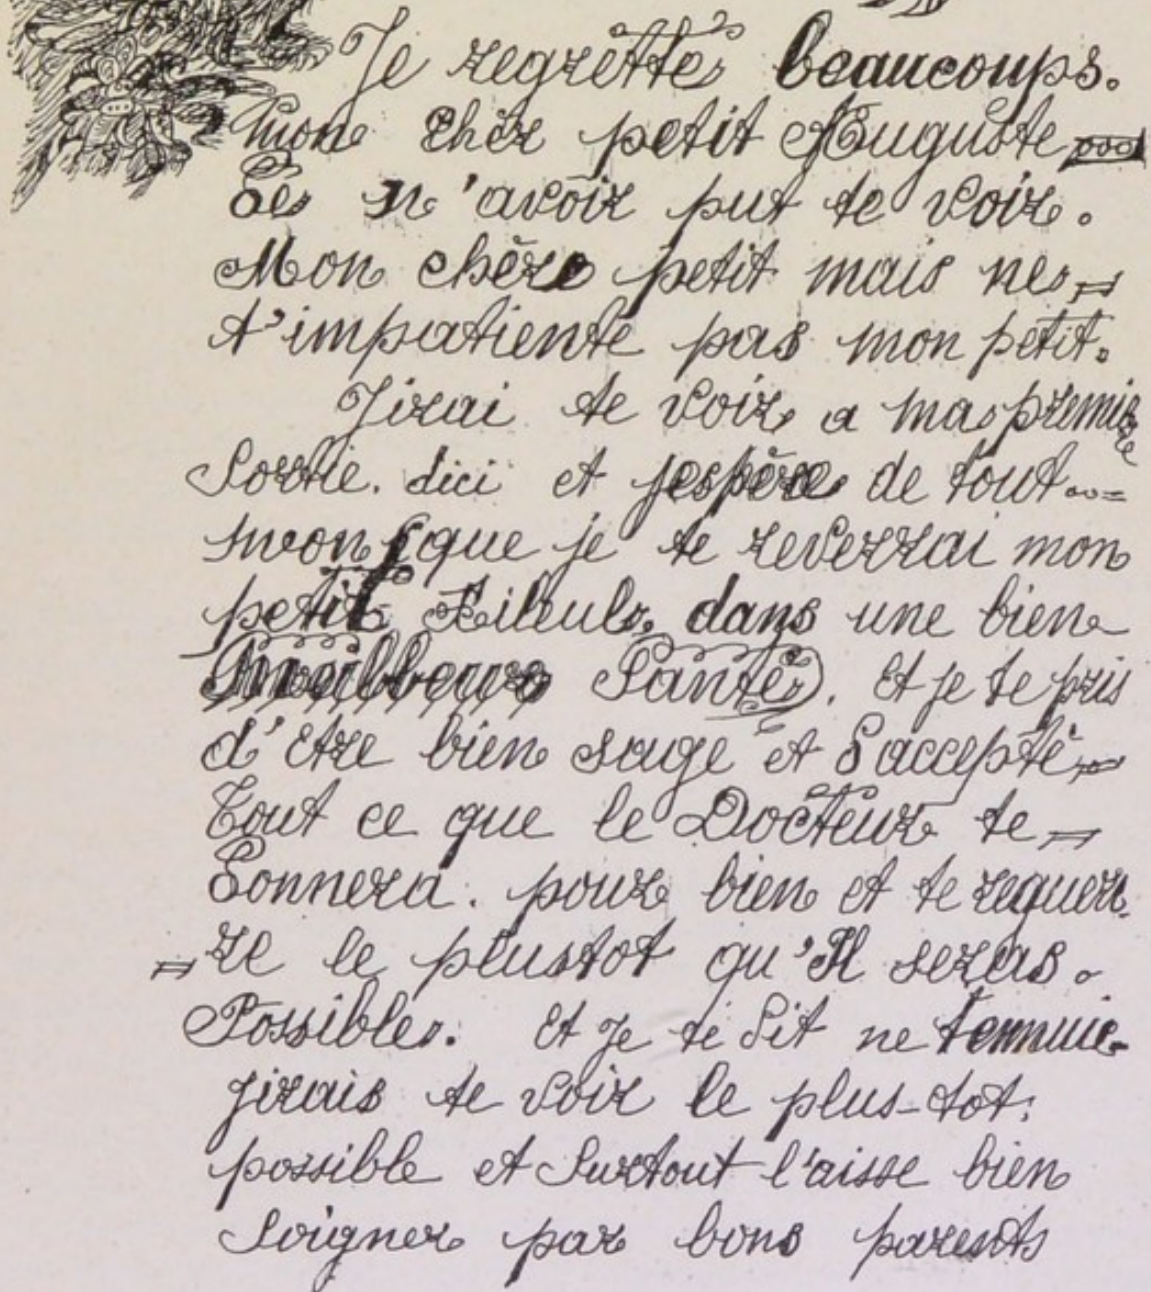 Je regrette beaucoups.
mon cher petit Auguste
De n'avoir put te voir.
Mon chère petit mais ne
t'impatiente pas mon petit.
Jirai te voir a ma premie
re
Sortie. dici et jespère de tout
mon que je te reverrai mon
petit Filleul dans une bien
Santé. Et je te pris
d'Etre bien sage et Daccepté
Tout ce que le Docteur te
Donnera. pour bien et te
re le plustot qu'Il seras.
Possible. Et Je te Dit ne tennuie
jirais te voir le plus-tot.
possible et Surtout l'aisse bien
Soigner par bons parents